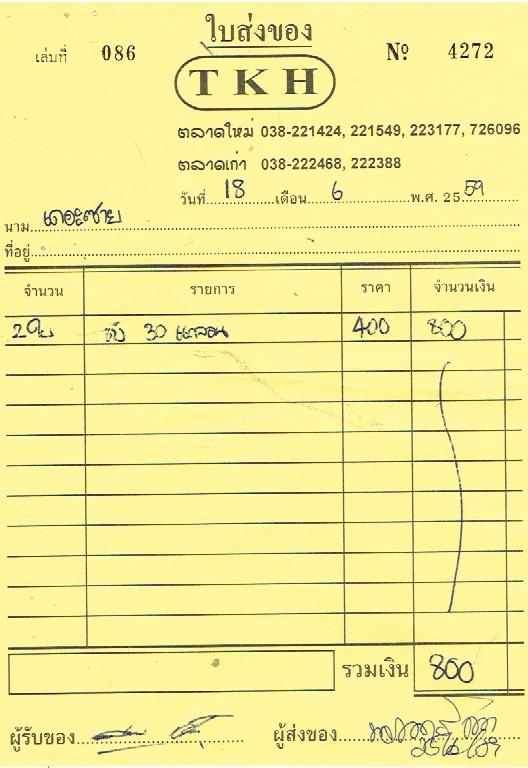 ใบส่งของ
เล่มที่ 086 Nº 4272
TKH
ตลาดใหม่ 038-221424, 221549, 223177, 726096
ตลาดเก่า 038-222468, 222388
วันที่ 18 เดือน 6 พ.ศ. 2559
นาม เดอะซาย
ที่อยู่
จำนวน รายการ ราคา จำนวนเงิน
2ใบ ถัง 30 แกลอน 400 800
รวมเงิน 800
ผู้รับของ ผู้ส่งของ